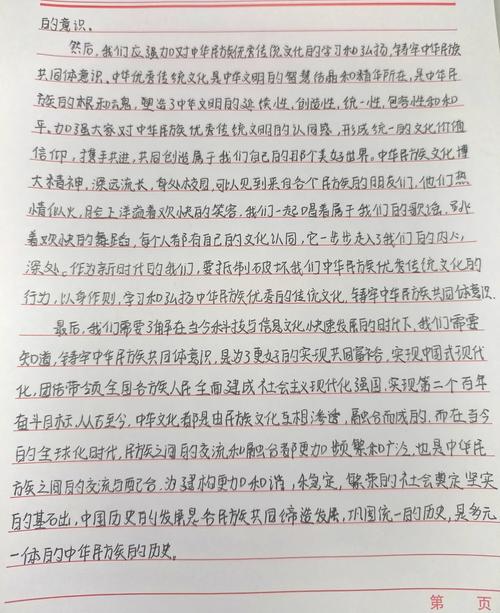 的意识。
然后，我们应强加对中华民族优秀传统文化的学习和弘扬，铸牢中华民族
共同体意识。中华优秀传统文化是中华文明的智慧结晶和精华所在，是中华民
族的根和魂，塑造了中华文明的延续性，创造性，统一性，包容性和和
平。加强大家对中华民族优秀传统文明的认同感，形成统一的文化价值
信仰，携手共进，共同创造属于我们自己的那个美好世界。中华民族文化博
大精神，深远流长，身处校园，可以见到来自各个民族的朋友们，他们热
情似火，脸上洋溢着欢快的笑容，我们一起唱着属于我们的歌谣，跳
着欢快的舞蹈，每个人都有自己的文化认同，它一步步走入了我们的内心
深处。作为新时代的我们，要抵制破坏我们中华民族优秀传统文化的
行为，以身作则，学习和弘扬中华民族优秀的传统文化，铸牢中华民族共同体意识。
最后，我们需要了解在当今科技与信息文化快速发展的时代下，我们需要
知道，铸牢中华民族共同体意识，是为了更好的实现共同富裕，实现中国式现代
化，团结带领全国各族人民全面建成社会主义现代化强国，实现第二个百年
奋斗目标，从古至今，中华文化都是由民族文化互相渗透，融合而成的，而在当今
的全球化时代，民族之间的交流和融合者都更加频繁和广泛，也是中华民
族之间的交流与配合，为建构更加和谐，稳定，繁荣的社会奠定坚实
的基石出，中国历史的发展是各民族共同缔造发展，巩固统一的历史，是多元
一体的中华民族的历史。
第 页